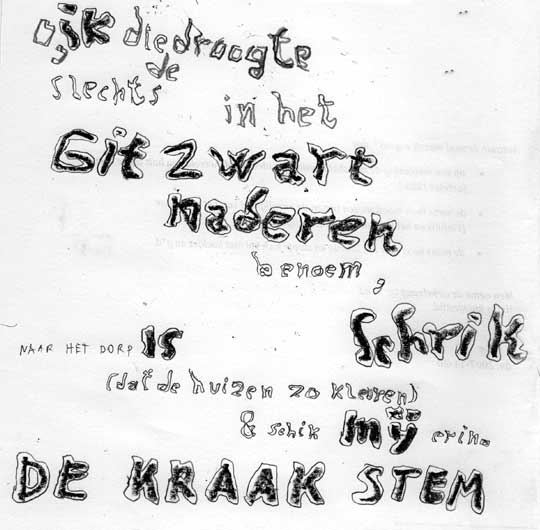 o, ik die droogte
slechts de
in het
Gitzwart
naderen
benoem,
Schrik
NAAR HET DORP IS
(dat de huizen zo klaren)
& schik mij erin.
DE KRAAK STEM